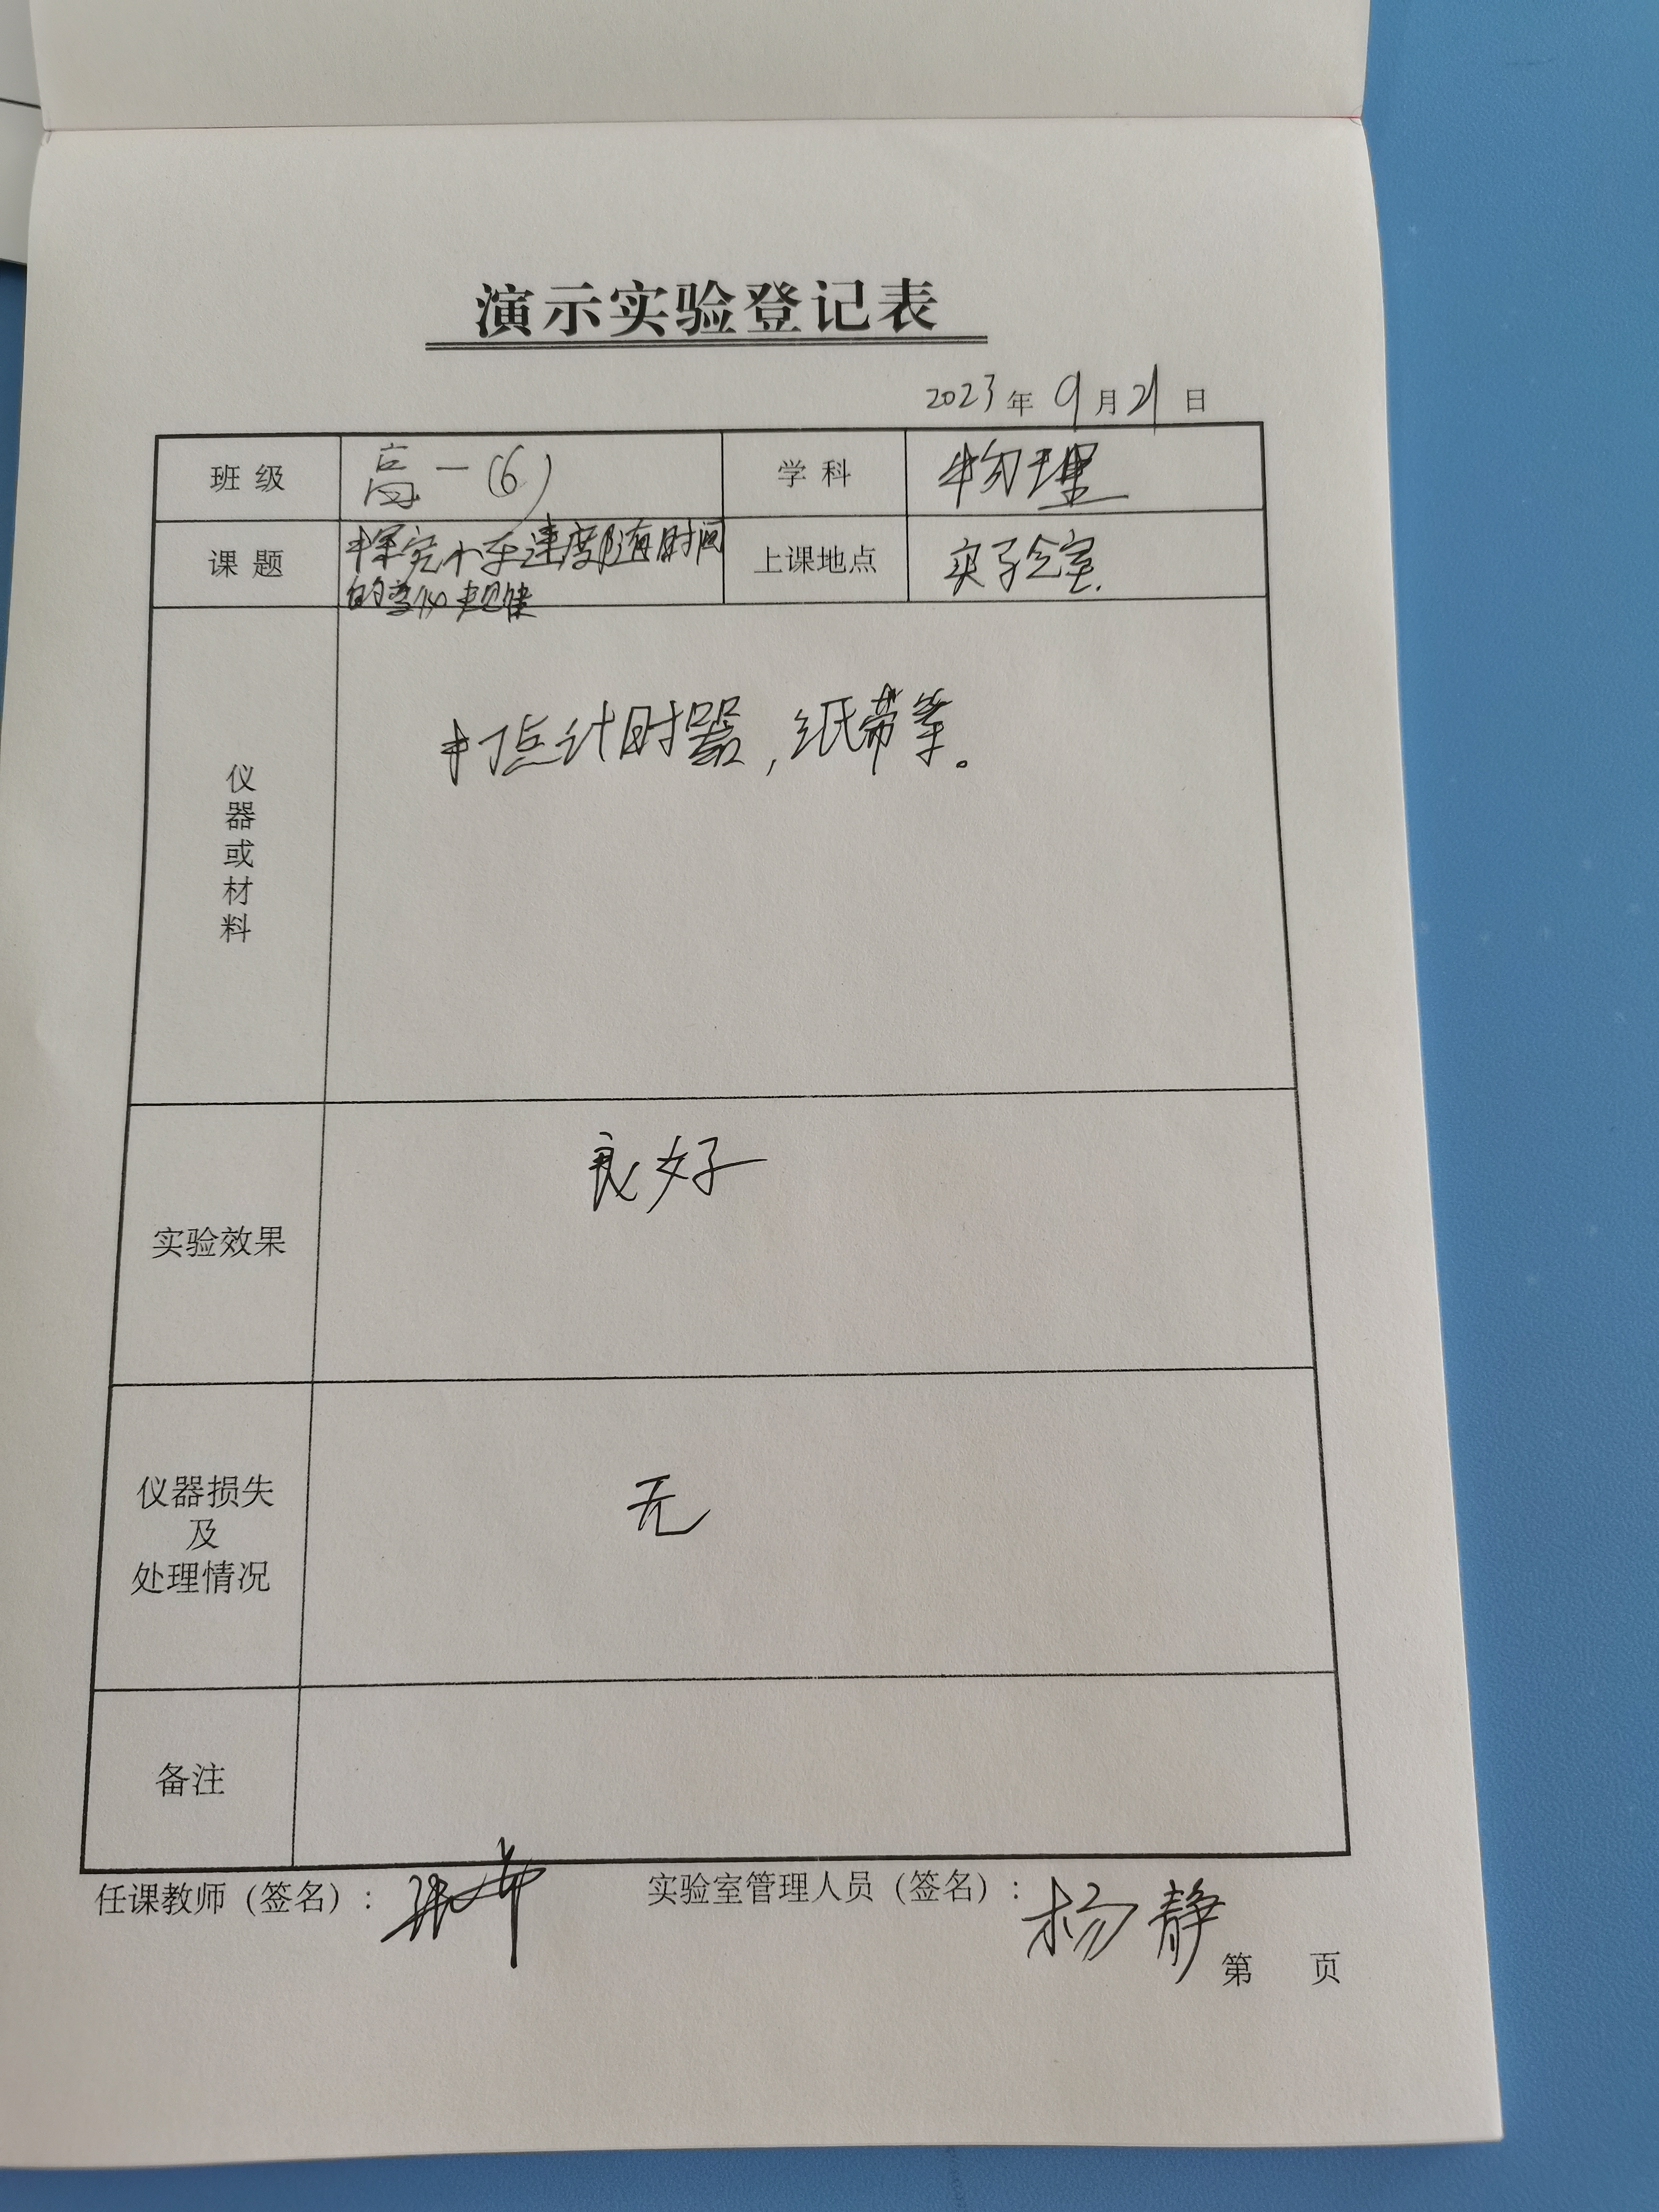 演示实验登记表
2023年9月21日
班级 高一(6) 学科 物理
课题 探究小车速度随时间的变化规律 上课地点 实验室.
仪器或材料 打点计时器,纸带等。
实验效果 良好
仪器损失及处理情况 无
备注
任课教师(签名): 实验室管理人员(签名): 杨静
第 页